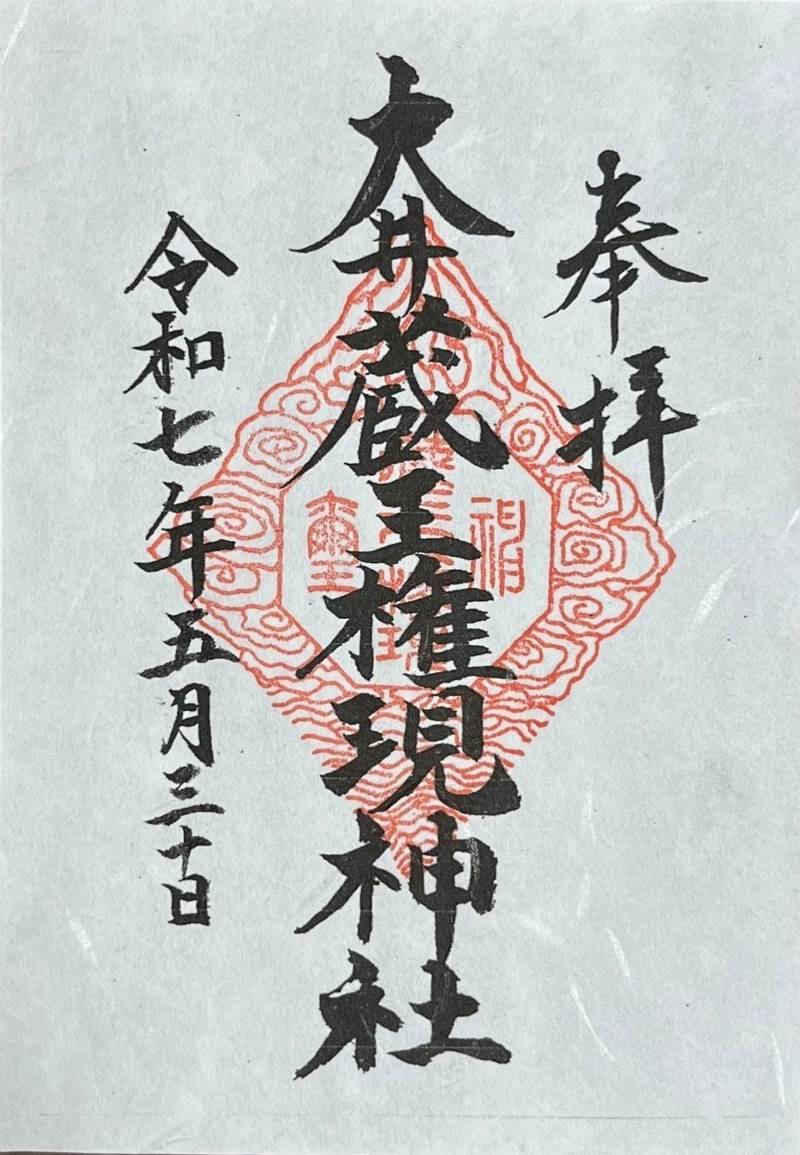 奉拝
大井蔵王権現神社
令和七年五月三十日